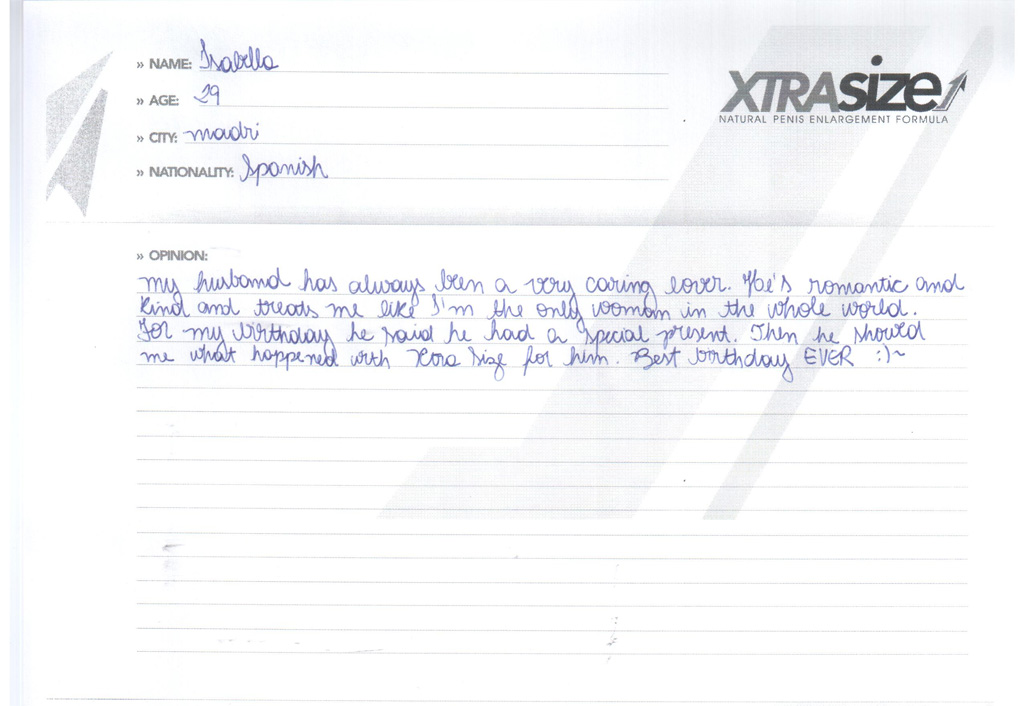 » NAME: Isabella
» AGE: 29
» CITY: madri
» NATIONALITY: Spanish
XTRASIZE
NATURAL PENIS ENLARGEMENT FORMULA
» OPINION:
my husband has always been a very caring lover. He's romantic and
kind and treats me like I'm the only woman in the whole world.
For my birthday he said he had a special present. Then he showed
me what happened with Xtra Size for him. Best birthday EVER :)~